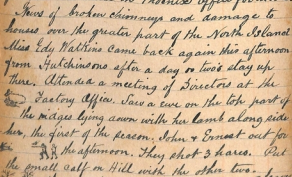 News of broken chimneys and damage to
houses over the greater part of the North Island
Miss Edy Watkins came back again this afternoon
from Hutchinsons after a day or two's stay up
there. Attended a meeting of Directors at the
Factory Office. Saw a ewe on the top part of
the ridges lying down with her lamb along side
her, the first of the season. John & Ernest out for
the afternoon. They shot 3 hares. Put
the small calf on Hill with the other two.